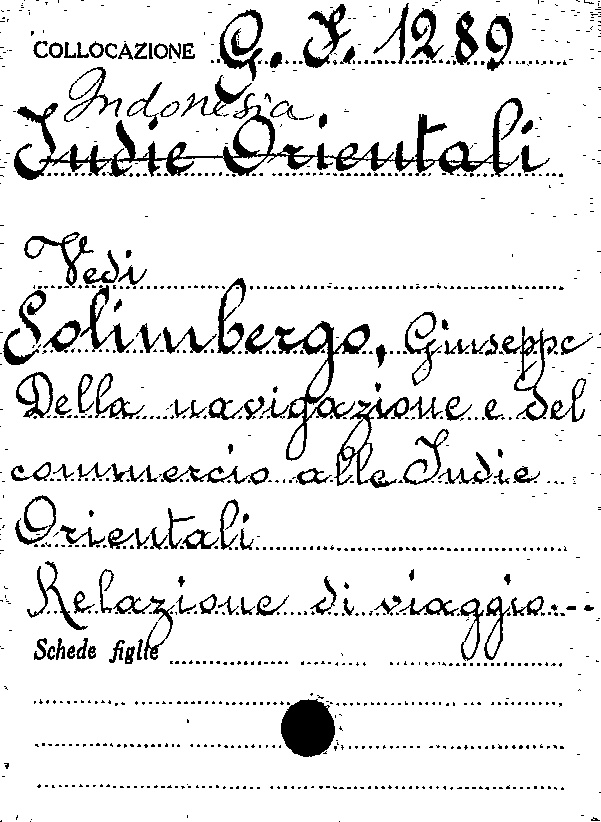 COLLOCAZIONE G. I. 1289
Indonesia
Indie Orientali
Vedi
Solimbergo, Giuseppe
Della navigazione e del
commercio alle Indie
Orientali
Relazione di viaggio...
Schede figlie